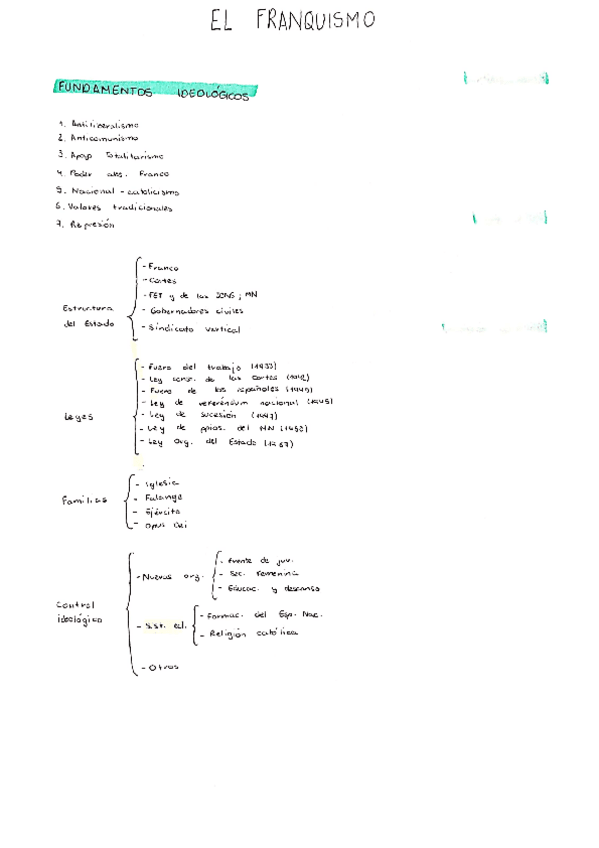 EL FRANQUISMO
FUNDAMENTOS IDEOLÓGICOS
1. Antiliberalismo
2. Anticomunismo
3. Apoyo Totalitarismo
4. Poder abs. Franco
5. Nacional - catolicismo
6. Valores tradicionales
7. Represión
Estructura del Estado
- Franco
- Cortes
- FET y de las JONS; MN
- Gobernadores civiles
- Sindicato vertical
Leyes
- Fuero del trabajo
- Ley const. de las Cortes
- Fuero de los españoles
- Ley de referéndum nacional (1945)
- Ley de sucesión (1947)
- Ley de ppios. del MN (1958)
- Ley Org. del Estado (1967)
Familias
- Iglesia
- Falange
- Ejército
- Opus Dei
Control ideológico
- Nuevas org.
- Frente de juv.
- Sec. Femenina
- Educac. y descanso
- Formac. del Esp. Nac.
- Religión católica
- Otros